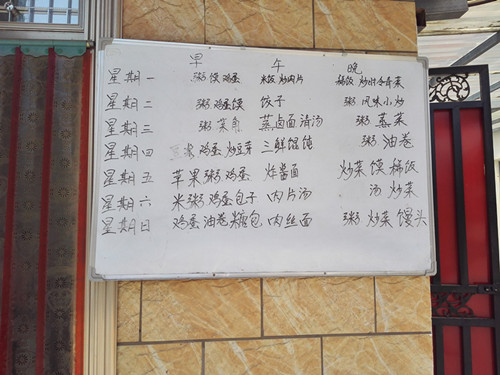 早 午 晚
星期一 粥 馍 鸡蛋 米饭 炒肉片 稀饭 炒什合青菜
星期二 粥 鸡蛋 馍 饺子 粥 风味小炒
星期三 粥 菜角 蒸卤面 清汤 粥 蒸菜
星期四 鸡蛋 炒豆芽 三鲜馄饨 粥 油卷
星期五 苹果粥 鸡蛋 炸酱面 炒菜 馍 稀饭
星期六 米粥 鸡蛋 包子 肉片汤 汤 炒菜
星期日 鸡蛋 油卷 糖包 肉丝面 粥 炒菜 馒头